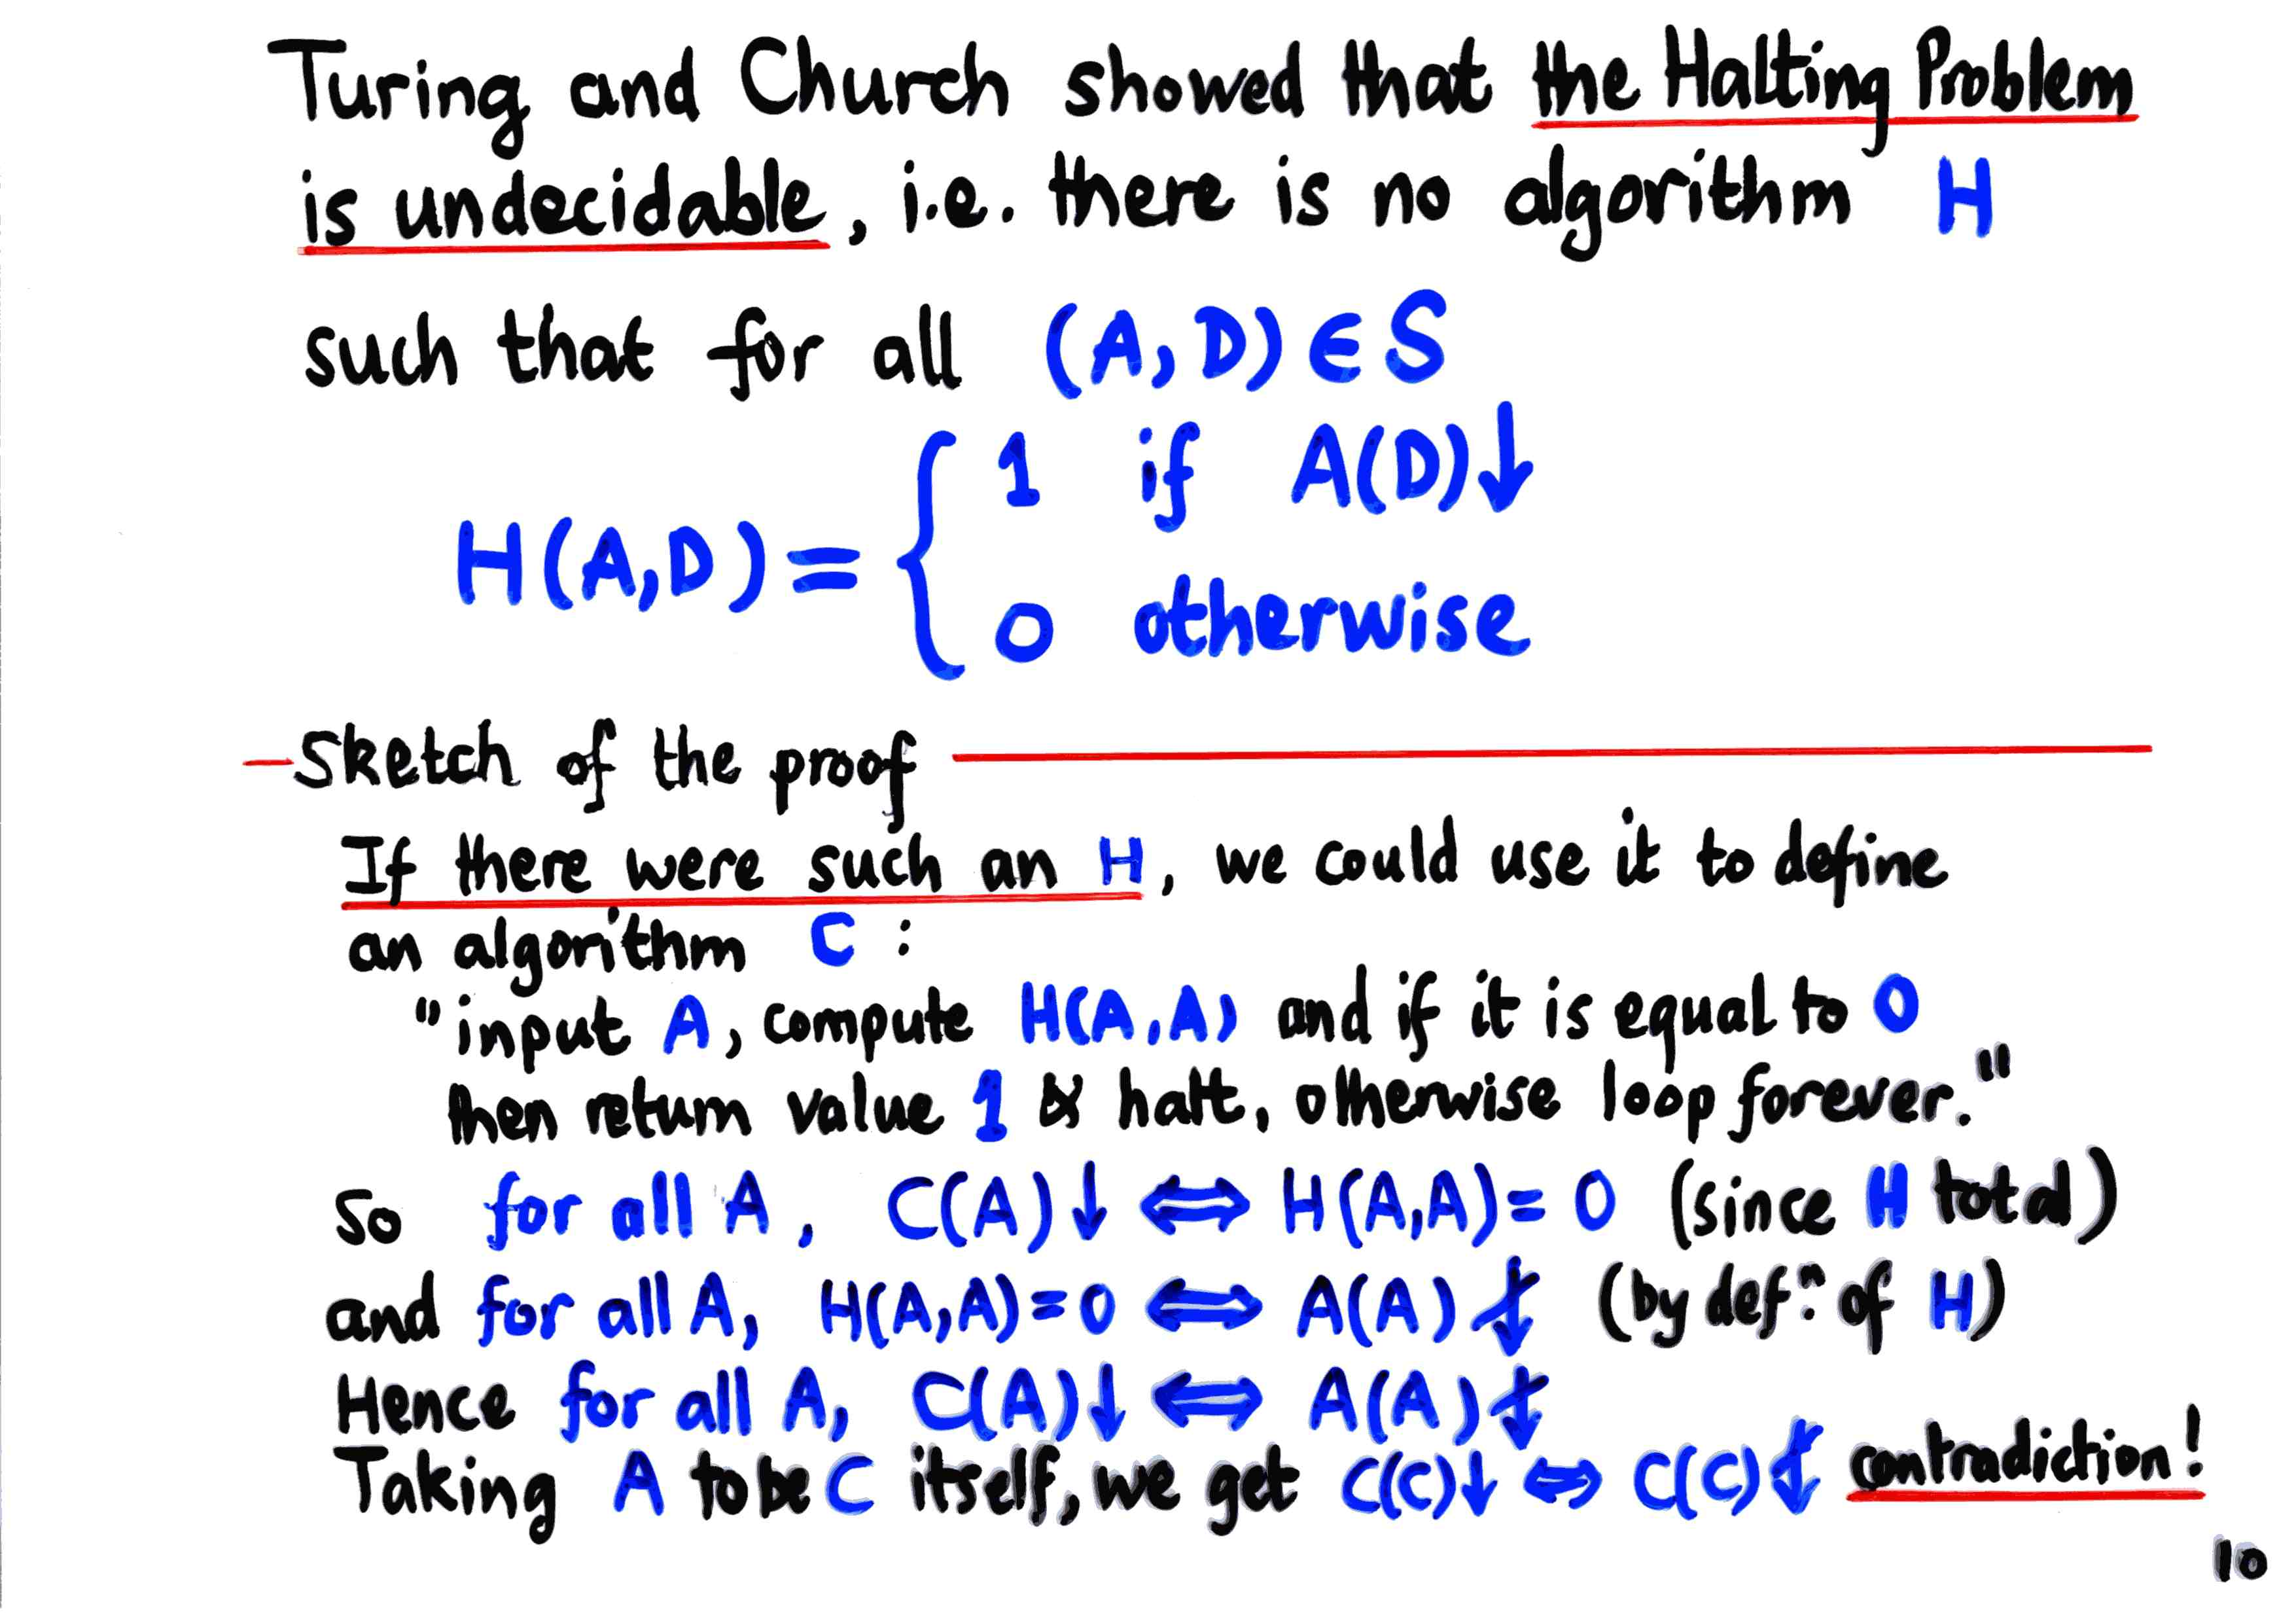 Turing and Church showed that the Halting Problem
is undecidable, i.e. there is no algorithm H
such that for all (A, D) ∈ S
H(A,D) = { 1 if A(D)↓
0 otherwise
Sketch of the proof
If there were such an H, we could use it to define
an algorithm C :
"input A, compute H(A,A) and if it is equal to 0
then return value 1 & halt, otherwise loop forever."
So for all A, C(A)↓ ⇔ H(A,A) = 0 (since H total)
and for all A, H(A,A) = 0 ⇔ A(A)↓̸ (by defⁿ of H)
Hence for all A, C(A)↓ ⇔ A(A)↓̸
Taking A to be C itself, we get C(C)↓ ⇔ C(C)↓̸ contradiction!
10